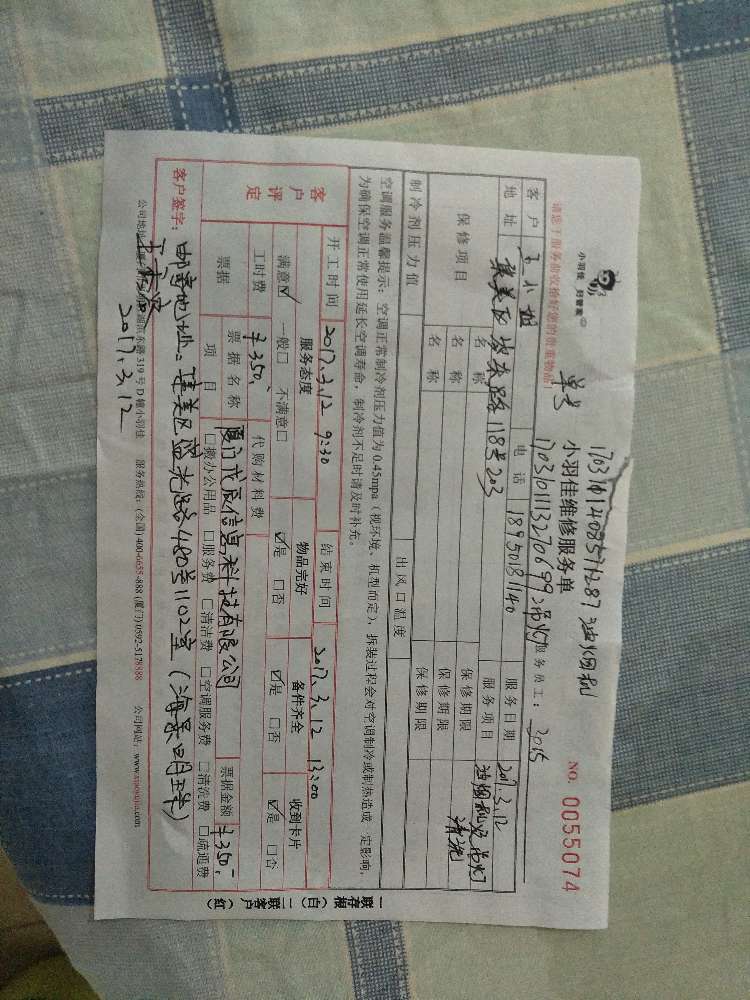 小羽佳 好管家
单号 1703101408571287 油烟机
1703101113270699 2吊灯
小羽佳维修服务单
NO. 0055074
请您于服务前收拾好您的贵重物品!
服务员工: 3015
客户 王小姐 电话 18950181140 服务日期 2017.3.12
地址 集美区 路118号203 服务项目 油烟机及吊灯清洗
保修项目 名称 保修期限
名称 保修期限
名称 保修期限
制冷剂压力值 出风口温度
空调服务温馨提示:空调正常制冷剂压力值为0.45mpa(视环境、机型而定),拆装过程会对空调制冷或制热造成一定影响,
为确保空调正常使用延长空调寿命,制冷剂不足时请及时补充。
开工时间 2017.3.12 9:30 结束时间 2017.3.12 13:00
客户评定 服务态度 物品完好 备件齐全 收到卡片
满意☑ 一般□ 不满意□ ☑是 □否 ☑是 □否 ☑是 □否
工时费 ¥350. 代购材料费
票据 票据名称 厦门戊辰信息科技有限公司 票据金额 ¥350.
项目 □搬办公用品 □服务费 □清洁费 □空调服务费 □清洗费 □疏通费
客户签字:
邮寄地址:集美区 路480号1102室(海景明珠)
2017.3.12
东路319号D幢小羽佳 服务热线:(全国)400-6655-888 (厦门)0592-5178888 公司网站:www.xiaoyujia.com
一联存根(白) 二联客户(红)